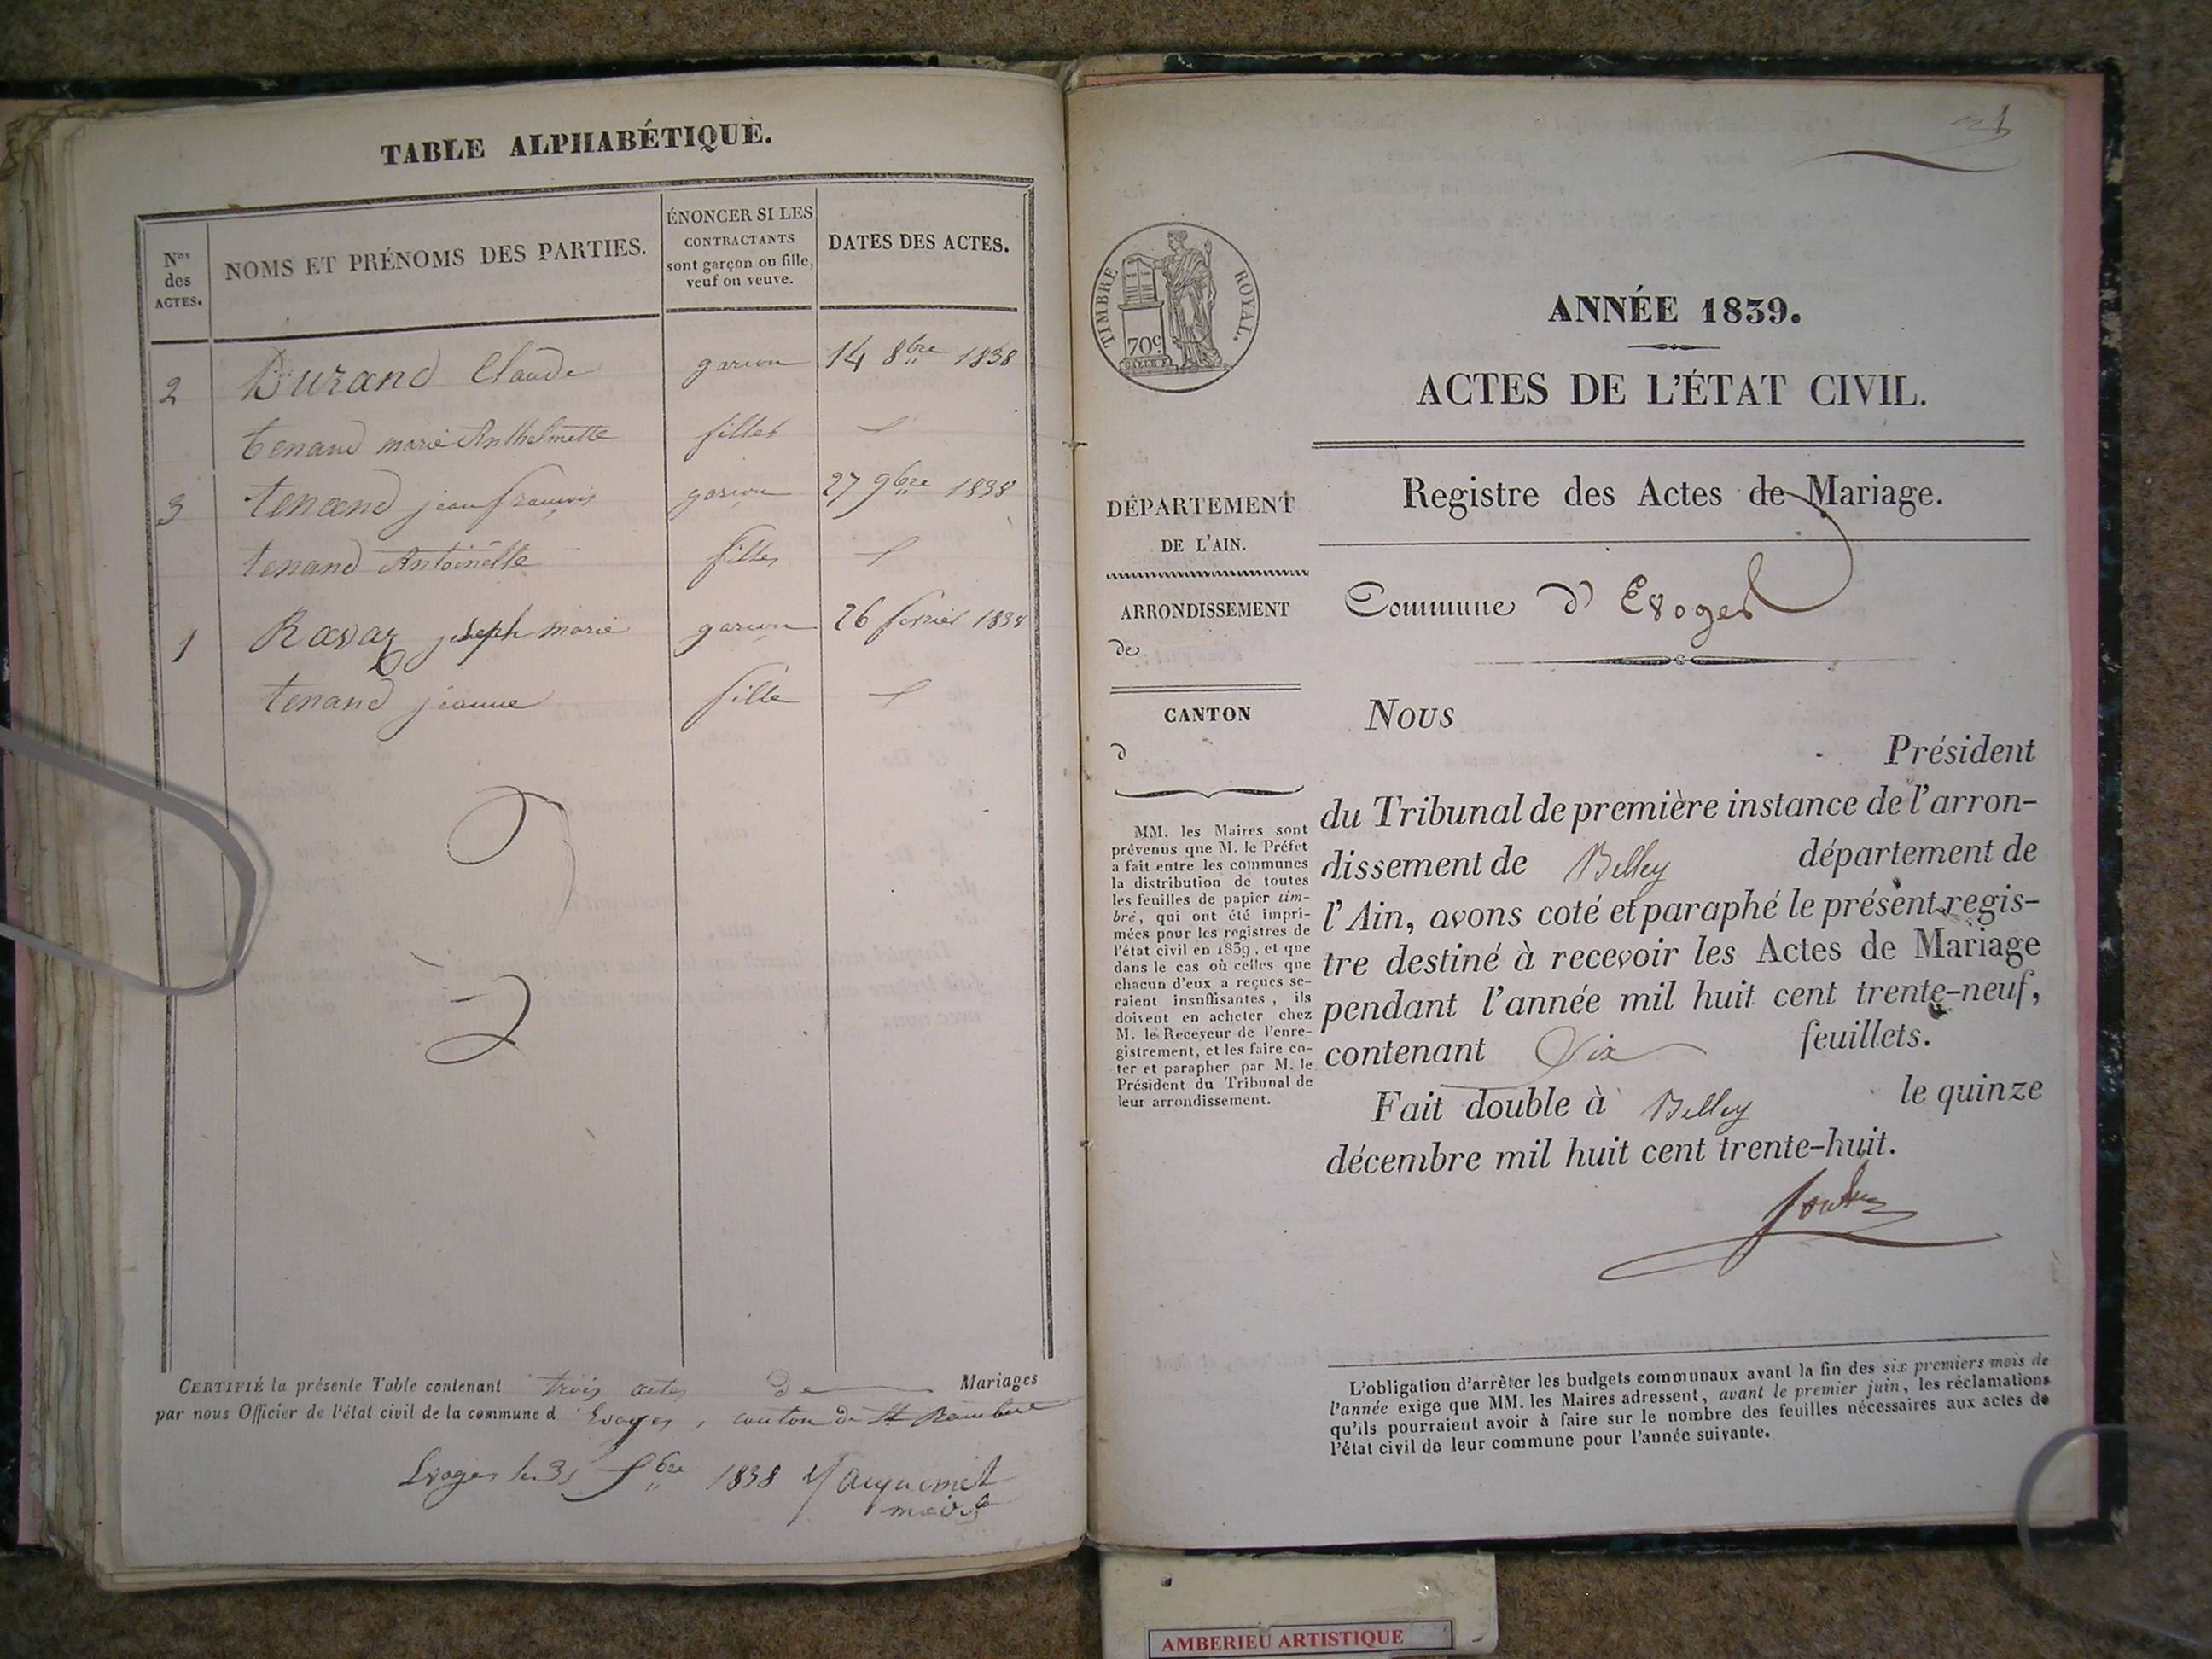 TABLE ALPHABÉTIQUE.
Nos des ACTES.
NOMS ET PRÉNOMS DES PARTIES.
ÉNONCER SI LES
CONTRACTANTS
sont garçon ou fille,
veuf ou veuve.
DATES DES ACTES.
2 Durand Claude garson 14 8bre 1838
tenand marie Anthelmette filles
3 tenand jean françois garson 27 9bre 1838
tenand Antoinette filles
1 Ravaz joseph marie garson 26 fevrier 1838
tenand jeanne fille
CERTIFIÉ la présente Table contenant trois actes de Mariages
par nous Officier de l'état civil de la commune d Evoges, canton de St Rambert
Evoges le 31 1838 Jacquemet
maire
TIMBRE ROYAL.
70c.
ANNÉE 1839.
ACTES DE L'ÉTAT CIVIL.
Registre des Actes de Mariage.
Commune d' Evoges
DÉPARTEMENT
DE L'AIN.
ARRONDISSEMENT
de
CANTON
d
MM. les Maires sont
prévenus que M. le Préfet
a fait entre les communes
la distribution de toutes
les feuilles de papier tim-
bré, qui ont été impri-
mées pour les registres de
l'état civil en 1839, et que
dans le cas où celles que
chacun d'eux a reçues se-
raient insuffisantes, ils
doivent en acheter chez
M. le Receveur de l'enre-
gistrement, et les faire co-
ter et parapher par M. le
Président du Tribunal de
leur arrondissement.
Nous
Président
du Tribunal de première instance de l'arron-
dissement de Belley département de
l'Ain, avons coté et paraphé le présent regis-
tre destiné à recevoir les Actes de Mariage
pendant l'année mil huit cent trente-neuf,
contenant Six feuillets.
Fait double à Belley le quinze
décembre mil huit cent trente-huit.
L'obligation d'arrêter les budgets communaux avant la fin des six premiers mois de
l'année exige que MM. les Maires adressent, avant le premier juin, les réclamations
qu'ils pourraient avoir à faire sur le nombre des feuilles nécessaires aux actes de
l'état civil de leur commune pour l'année suivante.
AMBERIEU ARTISTIQUE